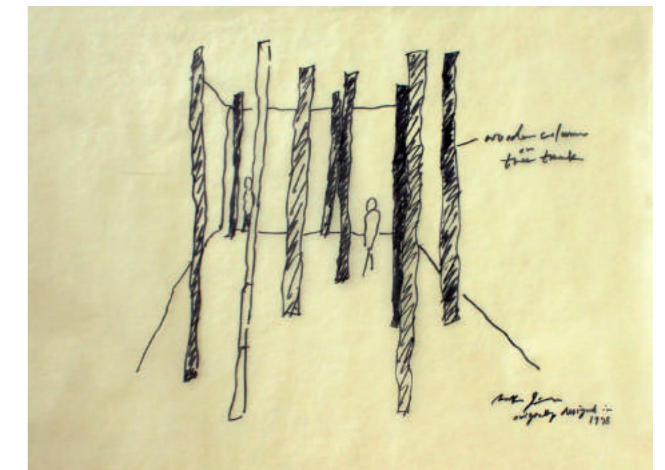 wooden column
or
tree trunk
originally designed in
1978